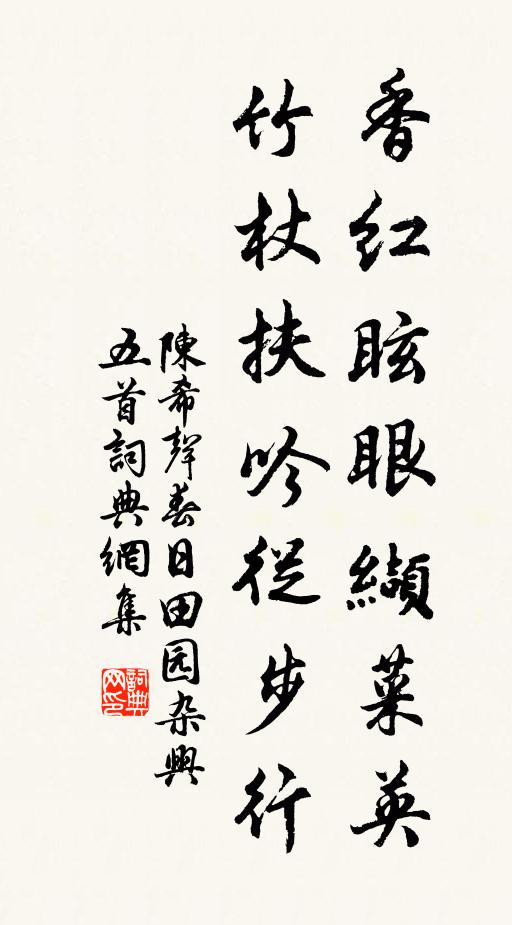 香紅眩眼纈菜英
竹杖扶吟從步行
陳希聲春日田园杂興
五首詞典網集
詞典
网印